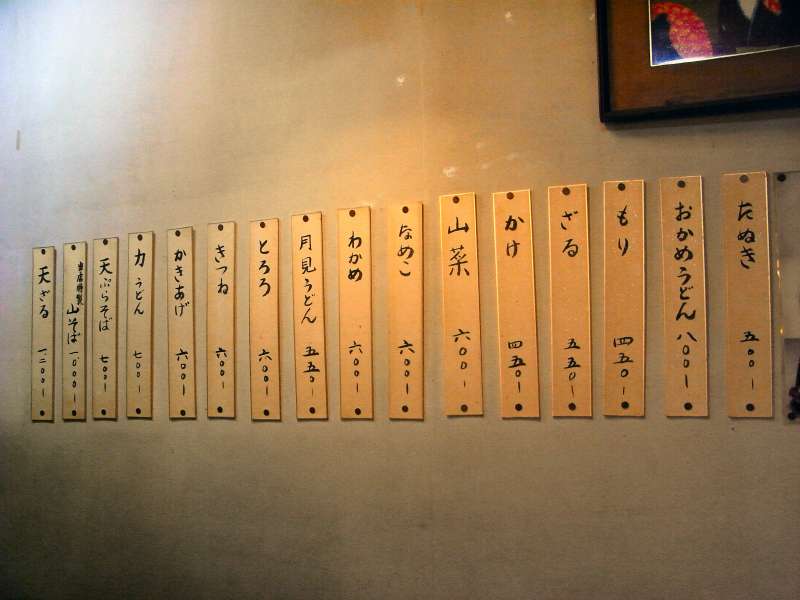 たぬき 五〇〇ー
おかめうどん 八〇〇ー
もり 四五〇ー
ざる 五五〇ー
かけ 四五〇ー
山菜 六〇〇ー
なめこ 六〇〇ー
わかめ 六〇〇ー
月見うどん 五五〇ー
とろろ 六〇〇ー
きつね 六〇〇ー
かきあげ 六〇〇ー
力うどん 七〇〇ー
天ぷらそば 七〇〇ー
当店特製 山そば 一〇〇〇ー
天ざる 一、二〇〇ー